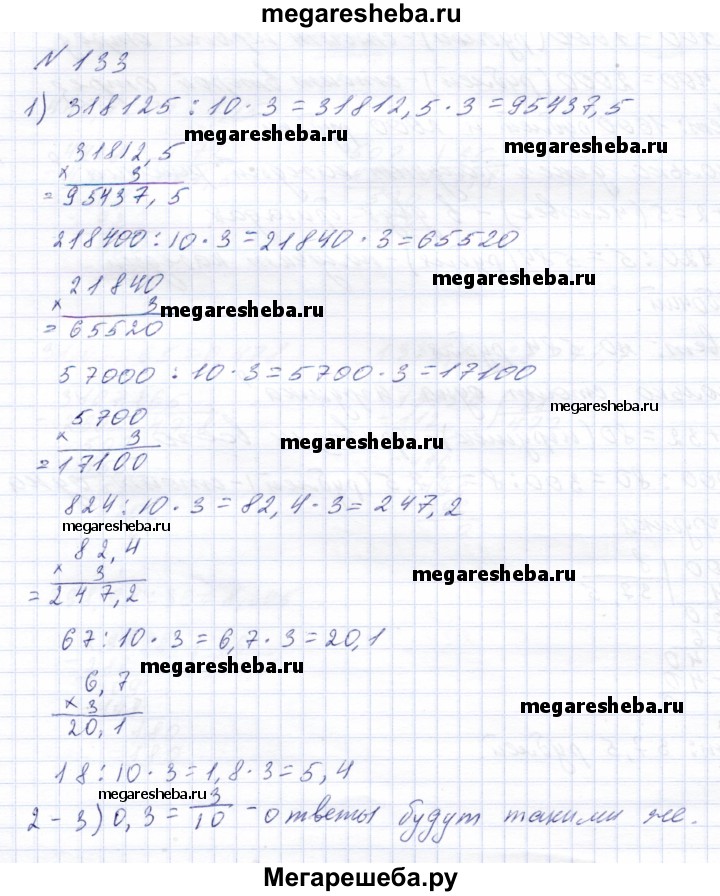 megaresheba.ru
N 133
1) 318125 : 10 · 3 = 31812,5 · 3 = 95437,5
megaresheba.ru
megaresheba.ru
31812,5
× 3
= 95437,5
218400 : 10 · 3 = 21840 · 3 = 65520
megaresheba.ru
21840
× 3
megaresheba.ru
= 65520
57000 : 10 · 3 = 5700 · 3 = 17100
megaresheba.ru
5700
× 3
megaresheba.ru
= 17100
824 : 10 · 3 = 82,4 · 3 = 247,2
megaresheba.ru
82,4
× 3
megaresheba.ru
= 247,2
67 : 10 · 3 = 6,7 · 3 = 20,1
megaresheba.ru
6,7
× 3
megaresheba.ru
20,1
18 : 10 · 3 = 1,8 · 3 = 5,4
megaresheba.ru
2 - 3) 0,3 = 3/10 - ответы будут такими же.
Мегарешеба.ру